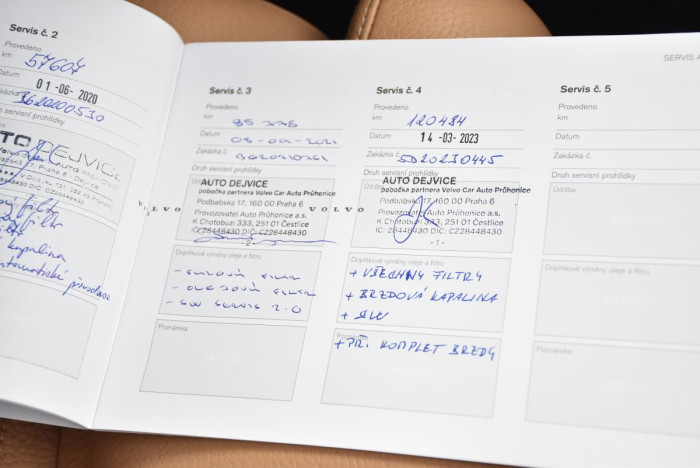 Servis č. 2
Provedeno
km 57607
Datum 01-06-2020
Zakázka
Druh servisní prohlídky
AUTO DEJVICE
filtr
kapalina
automatické převodovce
SERVIS
Servis č. 3
Provedeno
km
Datum
Zakázka č.
Druh servisní prohlídky
AUTO DEJVICE
pobočka partnera Volvo Car Auto Průhonice
Podbabská 17, 160 00 Praha 6
VOLVO
Provozovatel Auto Průhonice a.s.
K Chotobuzi 333, 251 01 Čestlice
IČ: 28448430 DIČ: CZ28448430
- 2 -
Doplňkové výměny oleje a filtru
- OLEJOVÝ FILTR
- SW SERVIS 2.0
Poznámka
Servis č. 4
Provedeno
km 120484
Datum 14-03-2023
Zakázka č. SD20230445
Druh servisní prohlídky
Údržba
AUTO DEJVICE
pobočka partnera Volvo Car Auto Průhonice
Podbabská 17, 160 00 Praha 6
VOLVO
Provozovatel Auto Průhonice a.s.
K Chotobuzi 333, 251 01 Čestlice
IČ: 28448430 DIČ: CZ28448430
- 1 -
Doplňkové výměny oleje a filtru
+ VŠECHNY FILTRY
+ BRZDOVÁ KAPALINA
+ PŘ. KOMPLET BRZDY
Servis č. 5
Provedeno
km
Datum
Zakázka č.
Druh servisní prohlídky
Údržba
Doplňkové výměny oleje a filtru
Poznámka